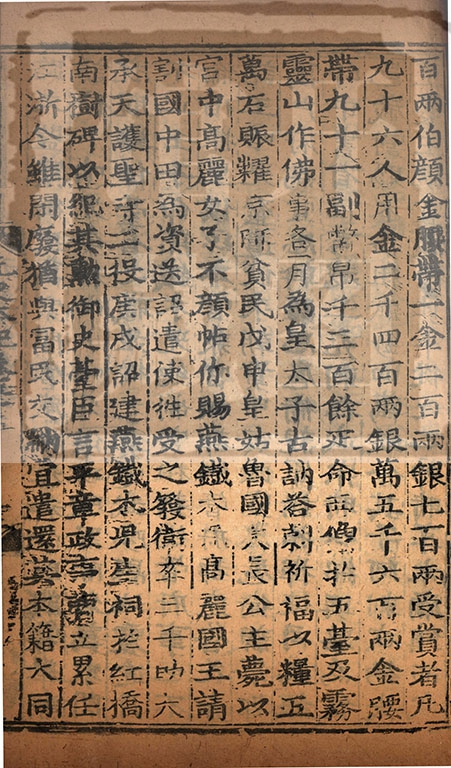 百兩伯顏金腰帶一金二百兩銀七百兩受賞者凡
九十六人用金二千四百兩銀萬五千六百兩金腰
帶九十一副幣帛千三百餘疋命西僧於五臺及霧
靈山作佛事各一月為皇太子古訥荅剌祈福以糧五
萬石賑糶京師貧民戊申皇姑魯國大長公主薨以
宮中高麗女子不顏帖你賜燕鐵木兒高麗國王請
割國中田為資送詔遣使徃受之發衛卒三千助大
承天護聖寺工役庚戌詔建燕鐵木兒生祠於紅橋
南樹碑以紀其勲御史臺臣言平章政事曹立累任
江浙今雖閑廢猶與冨民交納宜遣還其本籍大同